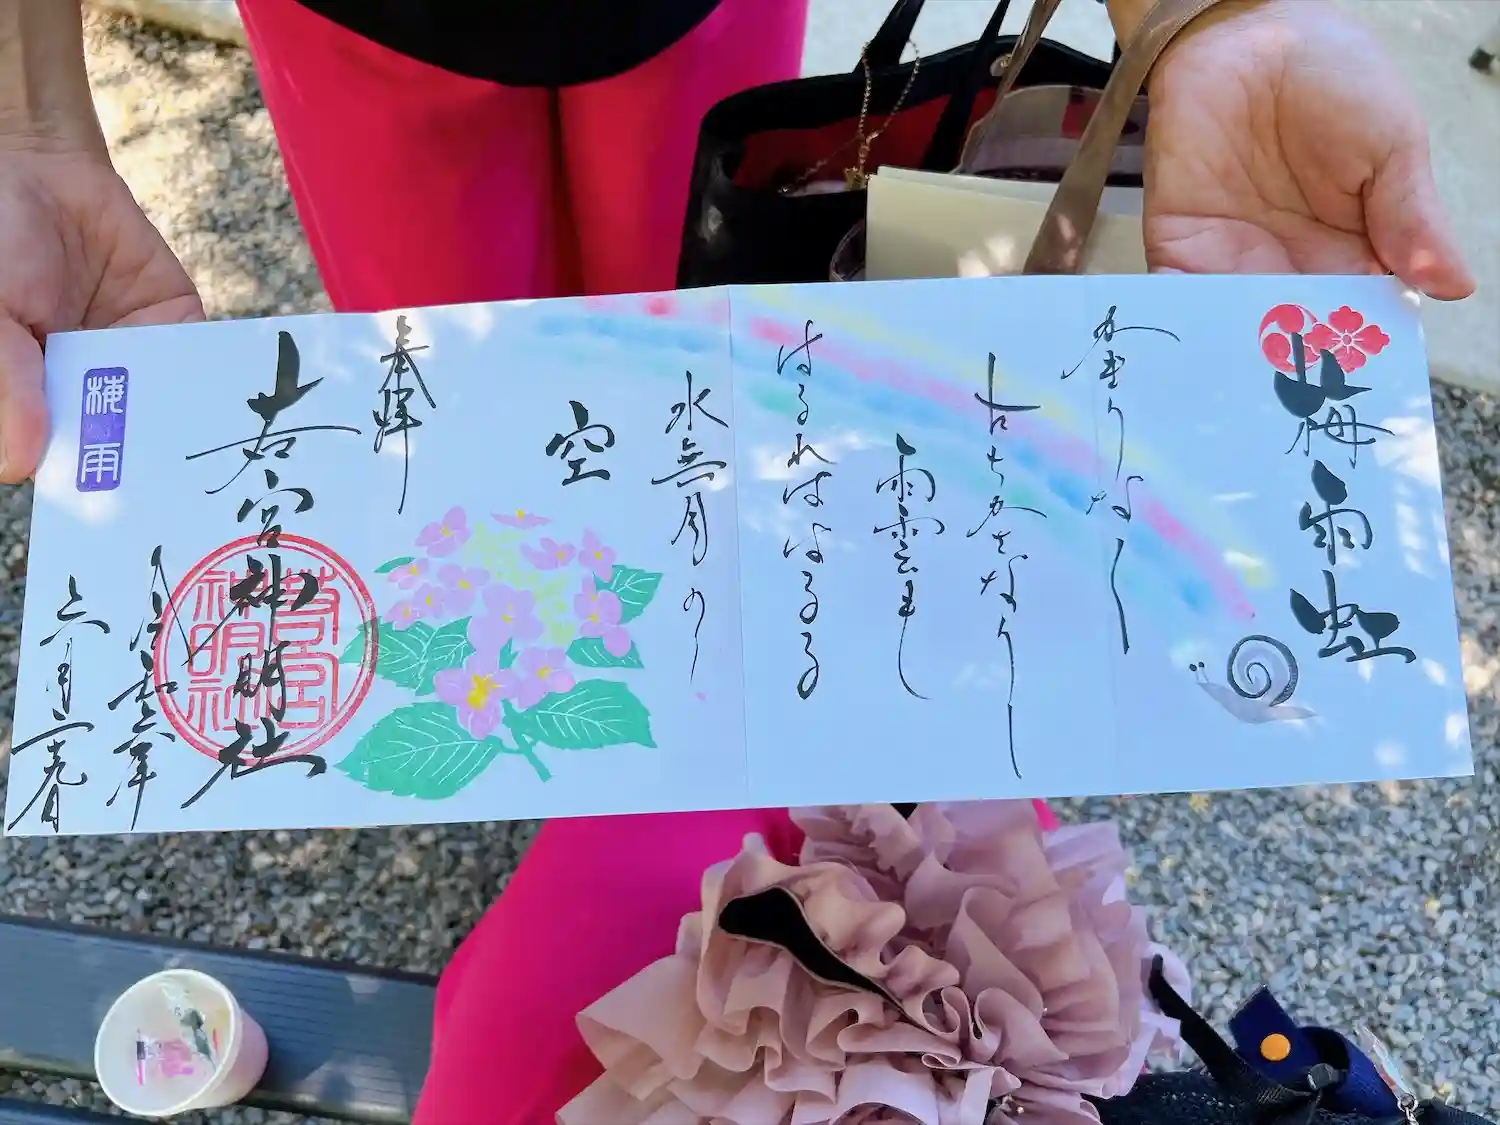 梅雨虹
かきりなく
かさなりし
雨雲もし
はるれははるる
水無月の
空
奉拝
若宮神明社
令和六年
六月二十九日
梅雨
若宮神明社